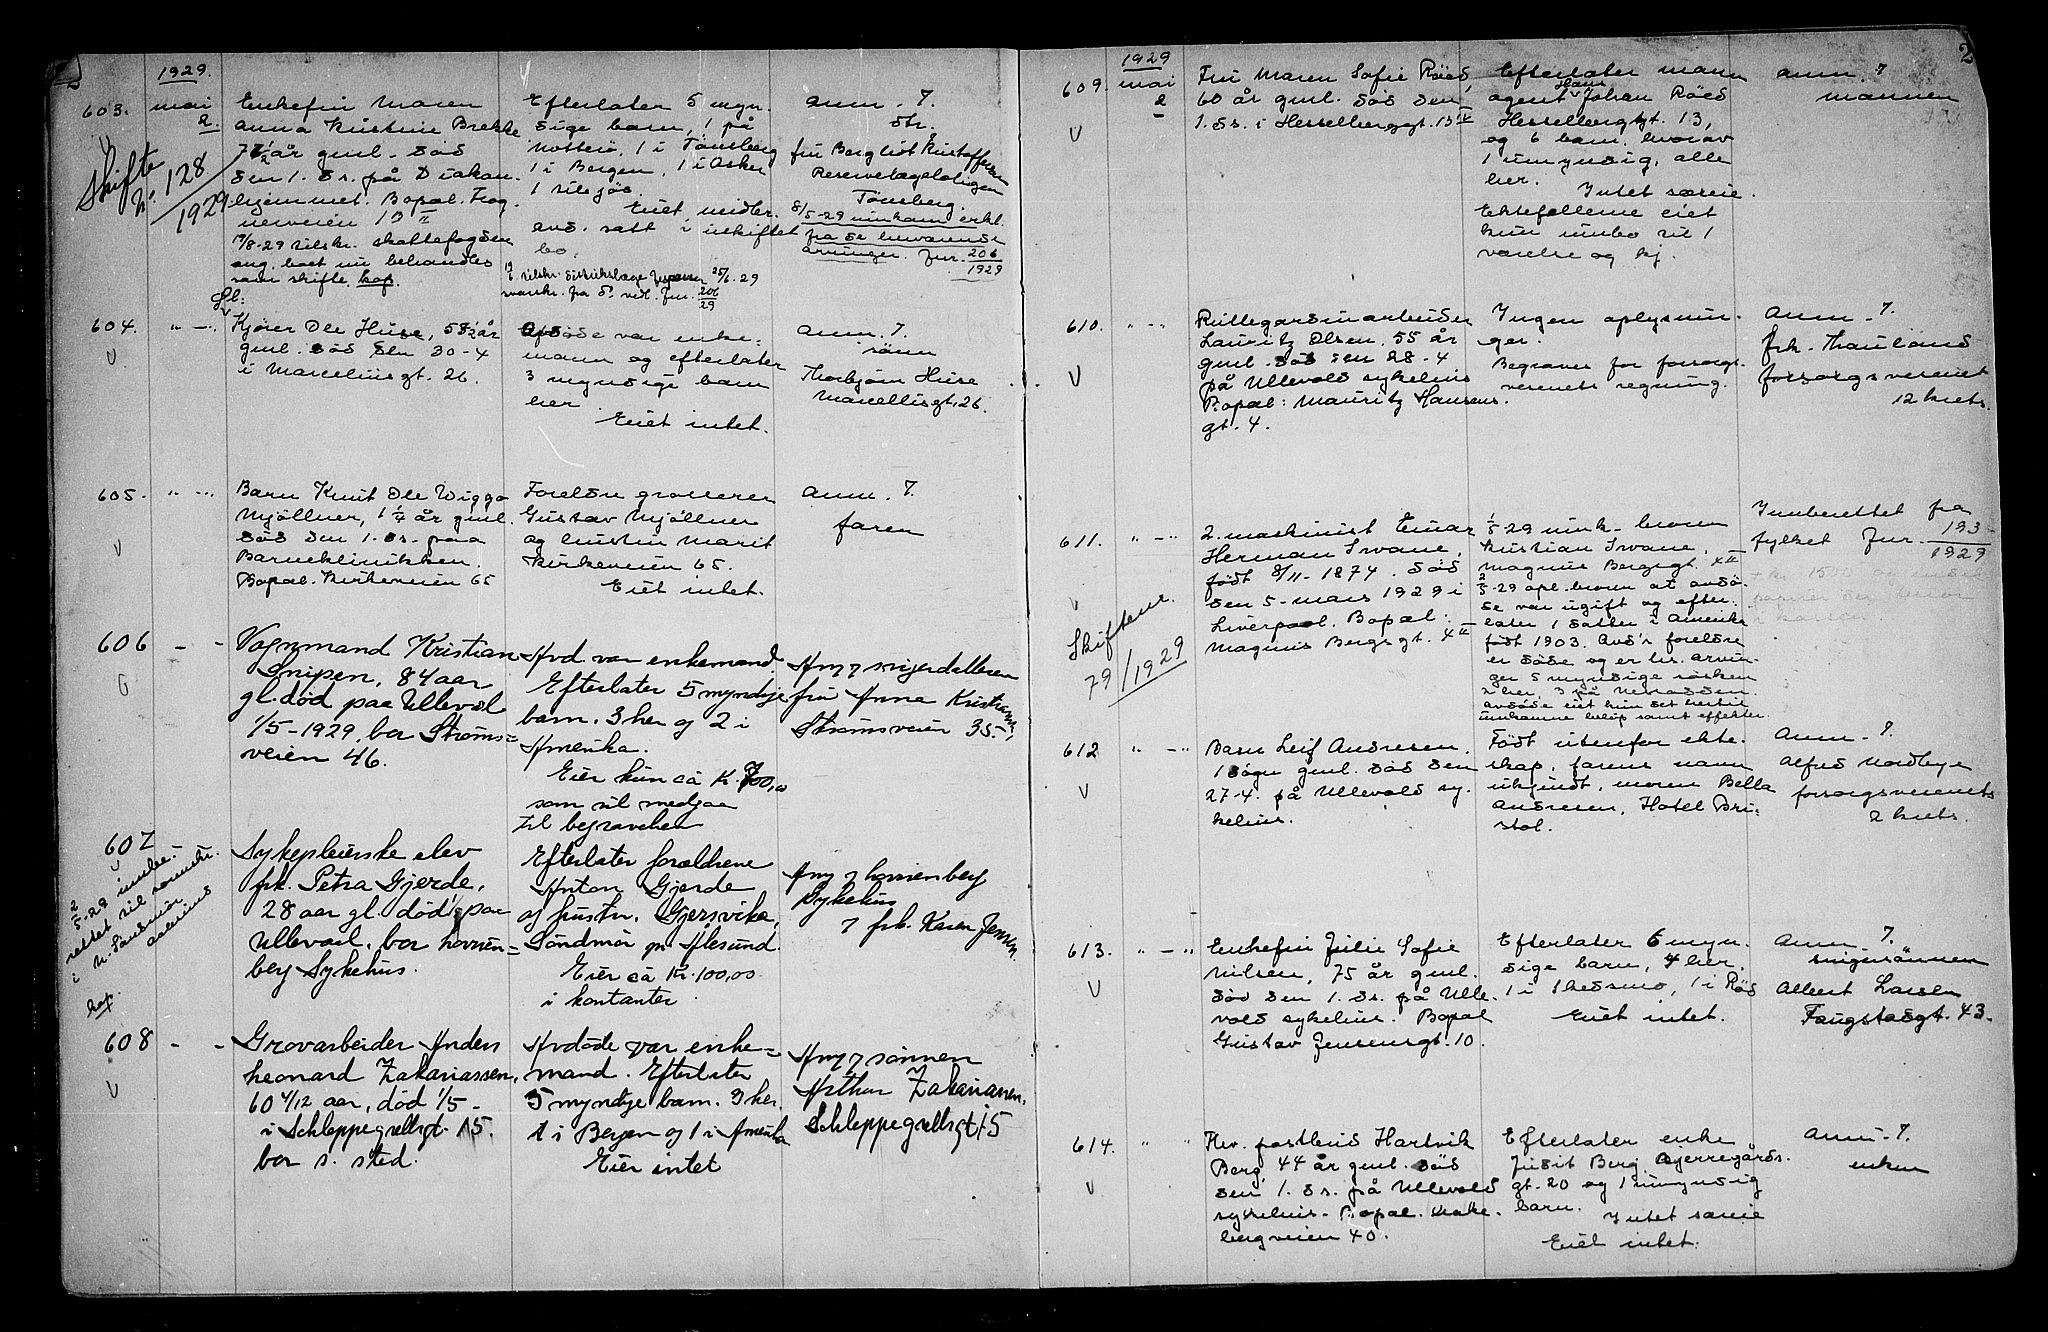 1929.
603. mai 2.
Enkefru Maren
Anna Kristine Brekke
7½ år gml. død
den 1. ds. på Diakon
hjemmet. Bopæl. Frog
nerveien 10 II
skattefogden
ang. boet nu behandles
som skifte. kop.
Skifte
Nr. 128
1929
Efterlater 5 myn.
dige barn, 1 på
Nötterö, 1 i Tönsberg
1 i Bergen, 1 i Asker
1 tilsjös.
Eiet midler.
avd. satt i uskiftet
bo.
anm. 7.
dtr.
fru Bergliot Kristoffersen
Reservelægeboligen
Tönsberg.
8/5-29 innkom erkl.
fra de nuværende
arvinger. Jnr. 206
1929
604. " -"
Kjörer Ole Huse, 58½ år
gml. död den 30-4
i Marcellus gt. 26.
Avdöde var enke-
mann og efterlater
3 myndige barn
her
Eiet intet.
anm. 7.
sönn
Thorbjörn Huse
Marcellisgt, 26.
605. " -"
Barn Knut Ole Wiggo
Mjöllner, 1¼ år gml.
död den 1. ds. paa
Barneklinikken.
Bopæl. Kirkeveien 65
Foreldre grosserer
Gustav Mjöllner
og hustru Marit
Kirkeveien 65.
Eiet intet.
anm. 7.
faren
606 - -
Vognmand Kristian
Snipen, 84 aar
gl. død paa Ullevål
1/5-1929, bor Strøms=
veien 46.
Avd. var enkemand
Efterlater 5 myndige
barn. 3 her og 2 i
Amerika.
Eier kun ca K. 700,00
som vil medgaa
til begravelsen
Anm 7 svigerdatteren
fru Anna Kristians
Strømsveien 35.
607
Sykepleierske elev
frk. Petra Gjerde,
28 aar gl. død paa
Ullevaal. bor Lovisen=
berg Sykehus.
2/5-29 innbe-
rettet til sorenskr.
i N. Söndmör
Aalesund
kop.
Efterlater forældrene
Anton Gjerde
og hustr. Gjersvika,
Söndmör pr Ålesund.
Eier ca Kr. 100,00
i kontanter
Anm 7 Lovisenberg
Sykehus
7 frk. Karen Jensen
608 - -
Grovarbeider Anders
Leonard Zakariassen,
60 4/12 aar, død 1/5-
i Schleppegrellsgt. 15.
bor s. sted.
Avdöde var enke=
mand. Efterlater
5 myndige barn. 3 her.
1 i Bergen og 1 i Amerika
Eier intet
Anm 7 sønnen
Arthur Zakariassen,
Schleppegrellsgt 15
1929
609. mai 2
Fru Maren Sofie Röed,
60 år gml. död den
1. ds. i Hesselberggt. 13 IV
Efterlater mann
agent Hans Johan Röed
Hesselbergsgt. 13,
og 6 barn, hvorav
1 umyndig, alle
her.
Intet særeie.
Ektefellene eiet
kun innbo til 1
værelse og kj.
anm. 7
mannen
610. " -"
Rullegardinarbeider
Lauritz Olsen, 55 år
gml. död den 28-4
på Ullevold sykehus
Bopæl: Mauritz Hansens.
gt. 4.
Ingen oplysnin-
ger.
Begraves for forsorgs.
verenets regning.
anm. 7.
frk. Thauland
forsorgsverenet
12 krets.
611. " -"
2. maskinist Einar
Herman Svane,
født 8/11-1874. död
den 5-mars 1929 i
Liverpool. Bopæl:
Magnus Bergs gt. 4 II
Skiftenr.
79/1929
1/5-29 innk. broren
Kristian Svane,
Magnus Bergsgt. 4 II
2/5-29 opl. broren at avdö-
de var ugift og efter.
later 1 datter i Amerika
født 1903. Avd's foreldre
er döde og er hs. arvin-
ger 5 myndige sösken
2 her, 3 på Nesodden.
Avdöde eiet kun det hertil
innkomne belöp samt effekter.
Innberettet fra
fylket Jnr. 193
1929
612 " -"
Barn Leif Andresen,
1 dögn gml. död den
27-4. på Ullevold sy.
kehus.
Født utenfor ekte.
skap, farens navn
ukjendt, moren Bella
Andresen, Hotel Bri-
stol.
Anm. 7.
Alfred Nordbye
forsorgsverenets
2 krets.
613. " -"
Enkefru Julie Sofie
Nilsen, 75 år gml.
död den 1. ds. på Ulle.
vold sykehus. Bopæl
Gustav Jensensgt. 10.
Efterlater 6 myn.
dige barn, 4 her,
1 i Skedsmo, 1 i Röd
Eiet intet.
anm. 7.
svigersönnen
Albert Larsen
Faugstadgt. 43.
614. " "
Fhv. postbud Hartvik
Berg, 44 år gml. död
den 1. ds. på Ullevold
sykehus. Bopæl. Kake.
bergveien 40.
Efterlater enke
Judit Berg, Bjerregårds.
gt. 20 og 1 umyndig
barn. Intet særeie
Eiet intet.
anm. 7.
enken